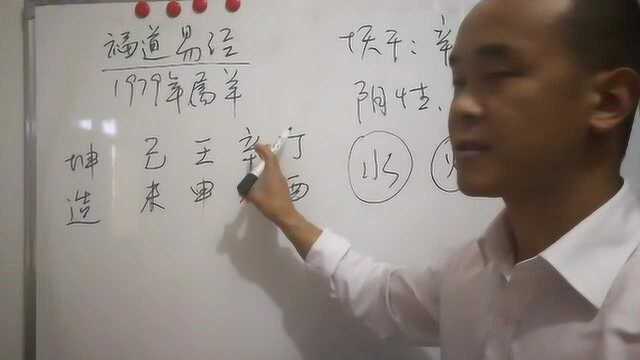 福道易经
1979年属羊
坤 己 壬 辛 丁
造 未 申 酉
干：辛
阴性、
水